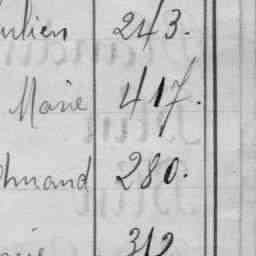 ulien 243.
Marie 417.
280.
312